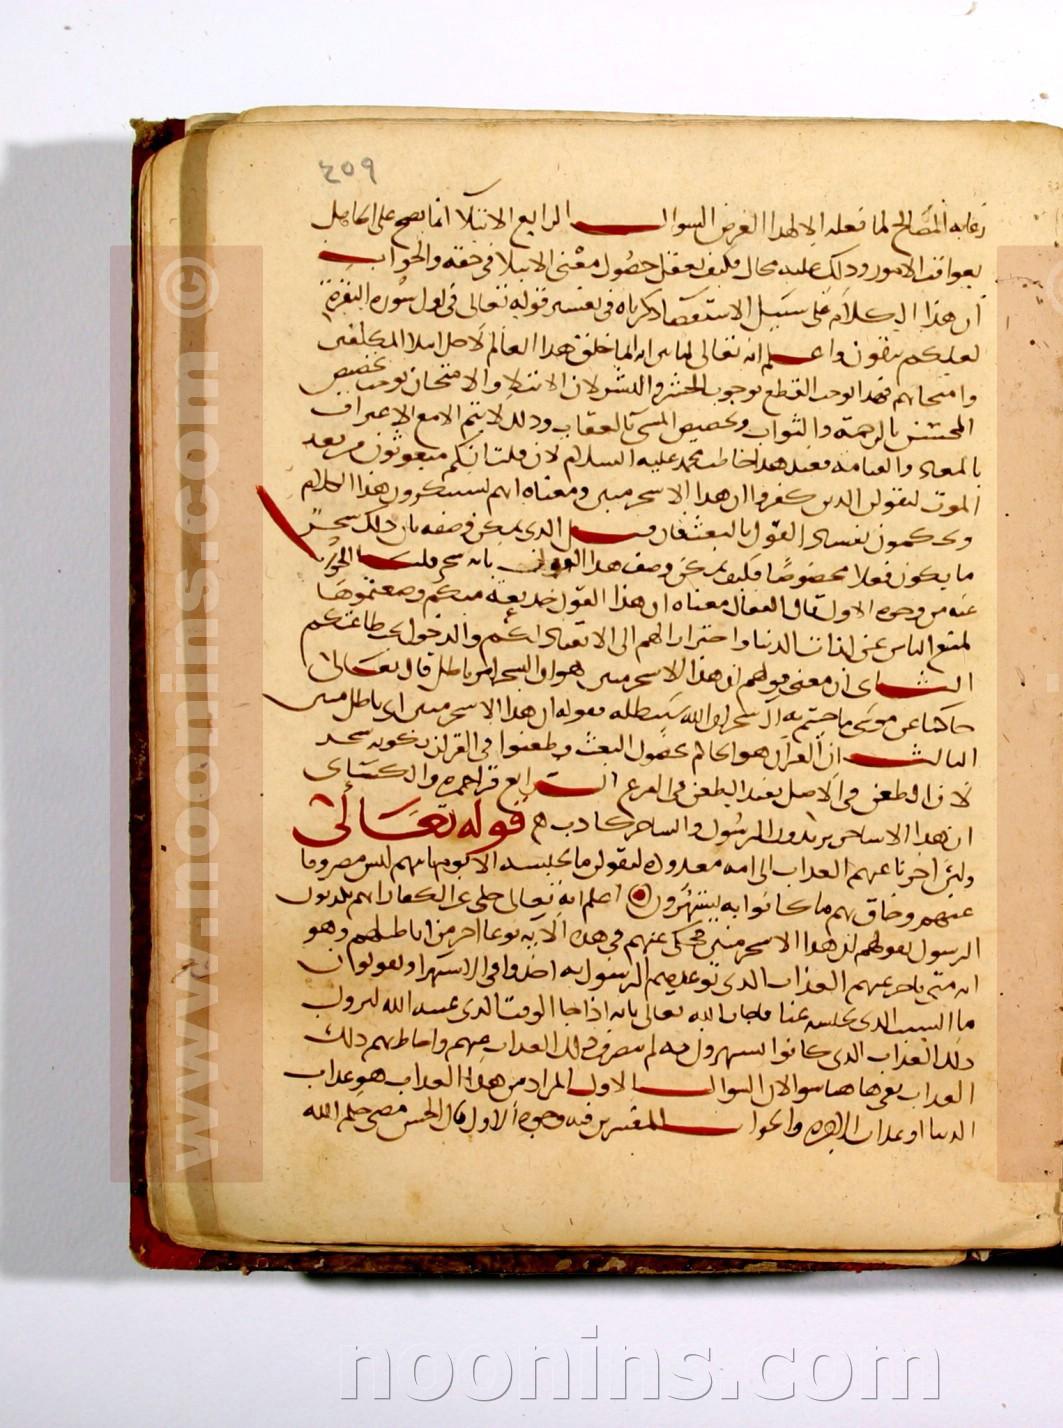 ٤٥٩
رعاية المصالح لما فعله الا لهذا الغرض السوال الرابع الابتلا انما يصح على الجاهل
بعواقب الامور وذلك عليه محال فكيف يعقل حصول معنى الابتلا في حقه والجواب
ان هذا الكلام على سبيل الاستقصا ذكرناه في تفسير قوله تعالى في اول سورة البقرة
لعلكم تتقون واعلم انه تعالى لما بين انه انما خلق هذا العالم لاجل ابتلا المكلفين
وامتحانهم فهذا يوجب القطع بوجوب الحشر والنشر لان الابتلا والامتحان يوجب تخصيص
المحسن بالرحمة والثواب وتخصيص المسي بالعقاب وذلك لا يتم الا مع الاعتراف
بالمعاد والقيامة فعند هذا خاطب محمد عليه السلام لان قلت انكم مبعوثون من بعد
الموت ليقولن الذين كفروا ان هذا الا سحر مبين ومعناه انهم يستنكرون هذا الكلام
ويحكمون بفساد القول بالبعث فان قيل الذي يمكن وصفه بان ذلك سحر
ما يكون فعلا مخصوصا فكيف يمكن وصف هذا القول بانه سحر قلنا الجواب
عنه من وجوه الاول قال القفال معناه ان هذا القول خديعة منكم وضعتموها
لمنع الناس عن لذات الدنيا واحترازا لهم الى الانقياد لكم والدخول تحت طاعتكم
الثاني ان معنى قولهم ان هذا الا سحر مبين هو ان السحر امر باطل قال تعالى
حاكيا عن موسى ما جيتم به السحر ان الله سيبطله فقوله ان هذا الا سحر مبين اي باطل مبين
الثالث ان القران هو الحاكم بحصول البعث وطعنوا في القران بكونه سحر
لان الطعن في الاصل يفيد الطعن في الفرع الرابع قرا حمزة والكسائي
ان هذا الا ساحر يريدون الرسول والساحر كاذب قوله تعالى
ولئن اخرنا عنهم العذاب الى امة معدودة ليقولن ما يحبسه الا يوم ياتيهم ليس مصروفا
عنهم وحاق بهم ما كانوا به يستهزون اعلم انه تعالى حكى عن الكفار انهم يكذبون
الرسول بقولهم ان هذا الا سحر مبين فحكى عنهم في هذه الاية نوعا اخر من اباطيلهم وهو
انه متى تاخر عنهم العذاب الذي توعدهم الرسول به اخذوا في الاستهزا ويقولون
ما السبب الذي حبسه عنا فاجاب الله تعالى بانه اذا جا الوقت الذي عينه الله لنزول
ذلك العذاب الذي كانوا يستهزون به لم ينصرف ذلك العذاب عنهم واحاط بهم ذلك
العذاب بقي هاهنا سوالان السوال الاول المراد من هذا العذاب هو عذاب
الدنيا او عذاب الاخرة والجواب للمفسرين فيه وجوه الاول قال الحسن معنى حكم الله
© www.noonins.com
noonins.com